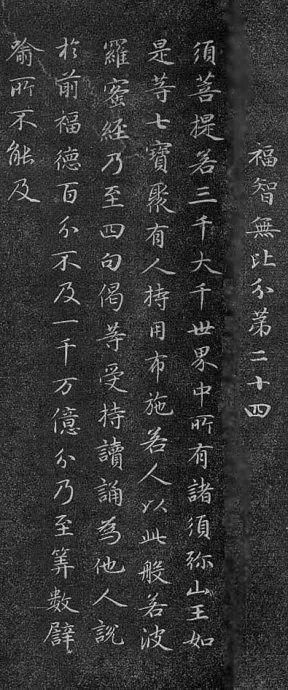 福智無比分第二十四
須菩提若三千大千世界中所有諸須弥山王如
是等七寶聚有人持用布施若人以此般若波
羅蜜經乃至四句偈等受持讀誦為他人說
於前福德百分不及一千万億分乃至筭數譬
喻所不能及